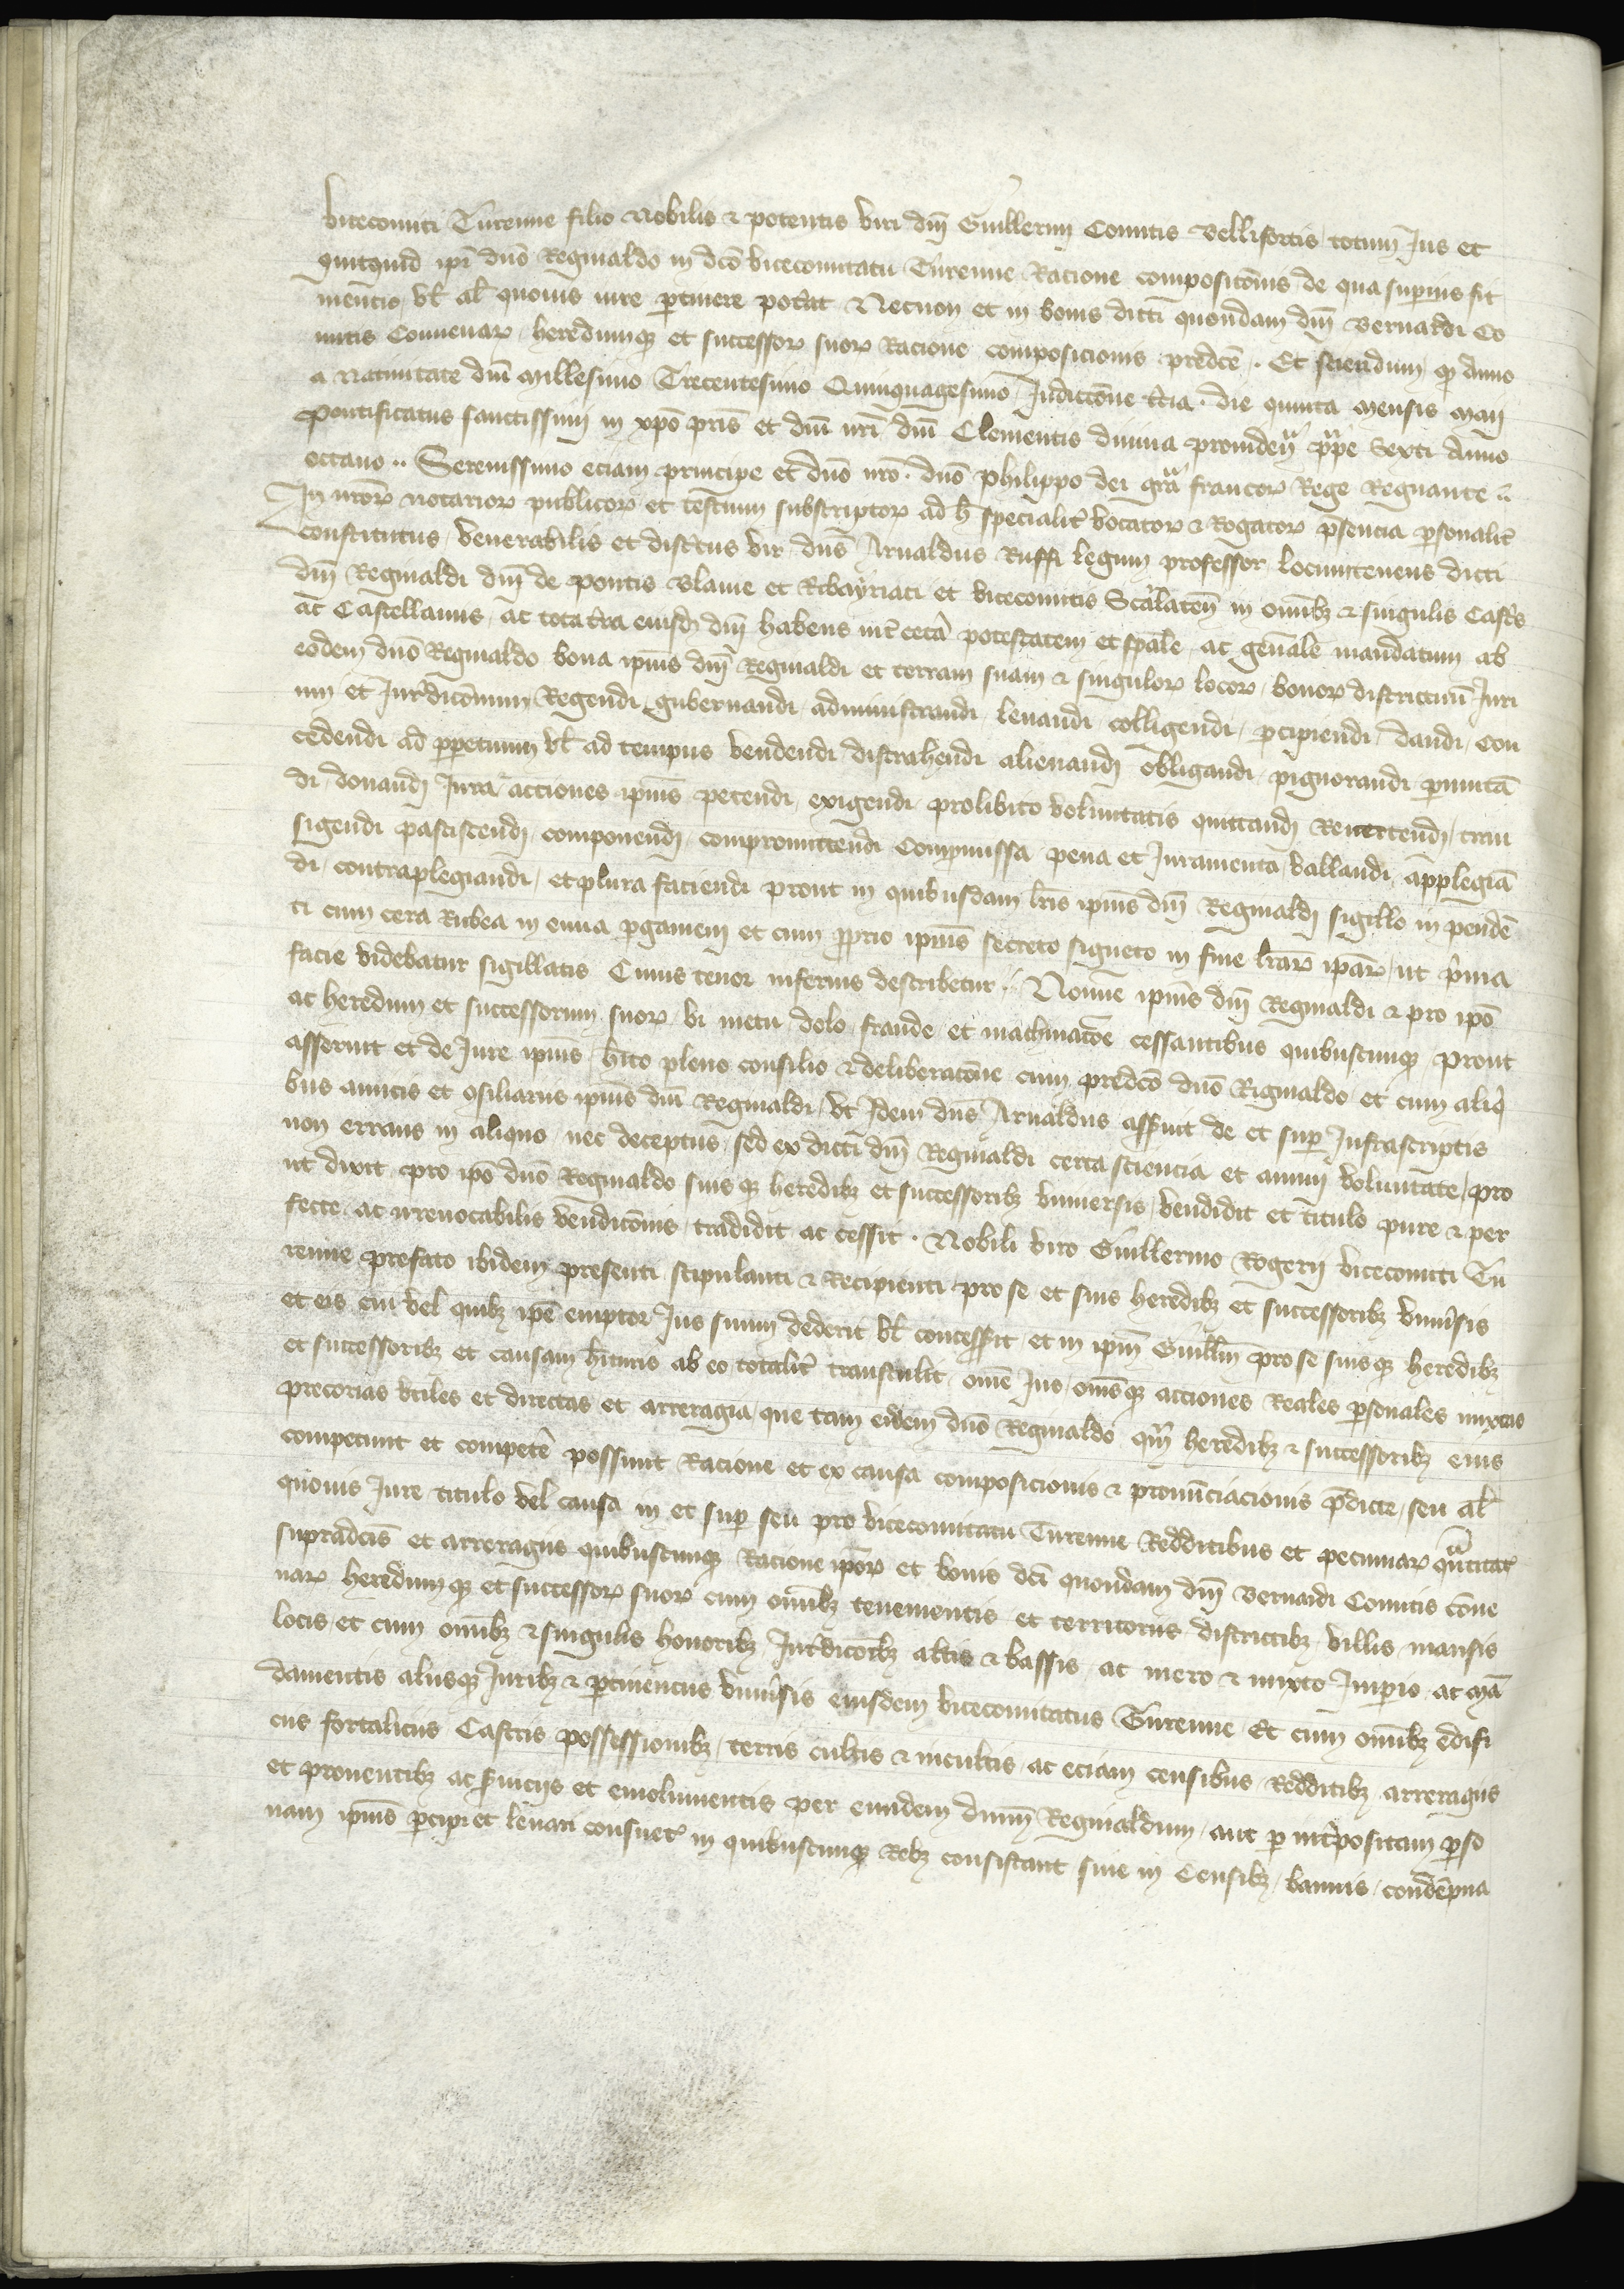 vicecomiti Turenne filio Nobilis & potentis viri dnī Guillermi Comitis Bellifortis totum Jus et
quitquid ipī dnō Reginaldo in dcō vicecomitatu Turenne Racione compositōnis de qua superius fit
mencio, vł ał quovis iure ꝑtinere pot̄at Necnon et in bonis dicti quondam dnī Bernardi Co
mitis Convenaꝝ, heredumqꝫ et successoꝝ suoꝝ Racione composicionis predcē. Et sciendum qꝫ Anno
a nativitate dnī Millesimo Trecentesimo Quinquagesimo Indictōne t̄cia. die quinta Mensis Maii
Pontificatus sanctissimi in xpō prīs et dnī nrī dnī Clementis divina providen̄ pp̄e Sexti Anno
octavo.. Serenissimo eciam principe et dnō nrō. dnō Philippo dei grā francoꝝ Rege Regnante..
In nrōꝝ notarioꝝ publicoꝝ et testium subscriptoꝝ ad h̄ specialit̄ vocatoꝝ & Rogatoꝝ p̄sencia ꝑsonalit̄
constitutus, Venerabilis et discretus vir dn̄s Arnaldus Ruffi legum professor locumtenens dicti
dnī Reginaldi dnī de pontis Blavie et Ribayriaci et vicecomitis Scarlaten̄ in omībꝫ & singulis Castris
ac Castellaniis, ac tota t̄ra eiusdē dnī habens int̄ cet̄a potestatem et spāle, ac gen̄ale mandatum ab
eodem dnō Reginaldo bona ipīus dnī Reginaldi et terram suam & singuloꝝ locoꝝ, bonoꝝ districtuū Juri
um et Jur̄dicōnum Regendi, gubernandi administrandi, levandi colligendi, ꝑcipiendi, dandi, con
cedendi ad ꝑpetuum vł ad tempus vendendi distrahendi alienandi obligandi, pignorandi ꝑmutā
di, donandi Jura & acciones ipīus petendi, exigendi prolibito voluntatis quittandi Remittendi, tran
sigendi paciscendi, componendi, compromittendi Compromissa pena et Juramenta vallandi, applegiā
di, contraplegiandi, et plura faciendi prout in quibusdam lrīs ipīus dnī Reginaldi sigillo in pendē
ti cum cera Rubea in cauda ꝑgameni et cum ꝓprio ipīus secreto signeto in fine lrāꝝ ipāꝝ, ut prima
facie videbatur sigillatis Cuius tenor inferius describetur.. Nomīe ipīus dnī Reginaldi & pro ipō
ac heredum et successorum suoꝝ, vi metu dolo fraude et machinatōe cessantibus quibuscunqꝫ prout
asseruit et de Jure ipīus, hīto pleno consilio & deliberatōne cum predcō dnō Riginaldo et cum aliq̄
bus amicis et ꝯsiliariis ipīus dnī Reginaldi, ut Idem dn̄s Arnaldus assẽuit de et suꝑ Infrascriptis
non errans in aliquo nec deceptus, sed ex dicti dnī Reginaldi certa sciencia et animi voluntate, pro
ut dixit pro ipō dnō Reginaldo suisqꝫ heredibꝫ et successoribꝫ universis, vendidit et titulo pure & per
fecte ac irrevocabilis vendicōnis, tradidit ac cessit. Nobili viro Guillermo Rogerii vicecomiti Tu
renne prefato ibidem presenti stipulanti & Recipienti pro se et suis heredibꝫ et successoribꝫ univ̄sis
et eis cui vel quibꝫ ipē emptor Jus suum dederit vł concesserit et in ipm̄ Guillm̄ pro se suisqꝫ heredibꝫ
et successoribꝫ et causam hīturis ab eo totalit̄ transtulit, omē Jus, omēsqꝫ acciones Reales ꝑsonales mixtas
precorias utiles et directas et arreragia, que tam eidem dnō Reginaldo qm̄ heredibꝫ & successoribꝫ eius
competunt et competē possunt Racione et ex causa composicionis & pronūciacionis p̄dicte, seu ał
quovis Jure titulo vel causa in et suꝑ seu pro vicecomitatu Turenne Redditibus et pecuniaꝝ q̄ntitat̄
supradcīs et arreragiis quibuscunqꝫ Racione ipōꝝ et bonis dcī quondam dnī Bernardi Comitis cōve
naꝝ heredumqꝫ et successoꝝ suoꝝ cum omībꝫ tenementis et territoriis districtibꝫ, villis, mansis
locis, et cum omībꝫ & singulis honoribꝫ Jur̄dicōibꝫ altis & bassis ac mero & mixto Imperio, ac mā
damentis aliisqꝫ Juribꝫ & ꝑtinenciis univ̄sis eiusdem vicecomitatus Turenne Et cum omībꝫ edifi
ciis fortaliciis Castris possessionibꝫ, terris cultis & incultis ac eciam censibus, Redditibꝫ arreragiis
et proventibꝫ ac s̄viciis et emolumentis per eundem dnūm Reginaldum, aut ꝑ int̄positam ꝑso
nam ipīus ꝑcipi et levari consuet̄ in quibuscunqꝫ Rebꝫ consistant sive in Censibꝫ, bannis, condēpna